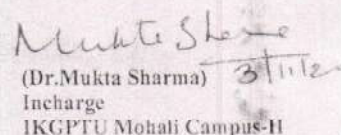 Mukta Sharma
(Dr.Mukta Sharma)
Incharge
IKGPTU Mohali Campus-II